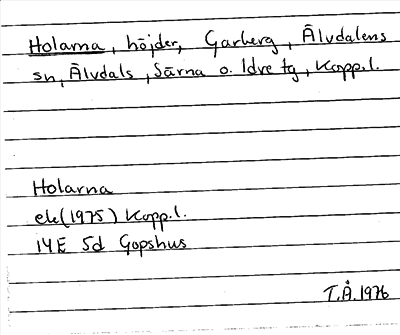 Holarna, höjder, Garberg, Älvdalens
sn, Älvdals, Särna o. Idre tg, Kopp.l.
Holarna
ek(1975) Kopp.l.
14E 5d Gopshus
T.Å.1976